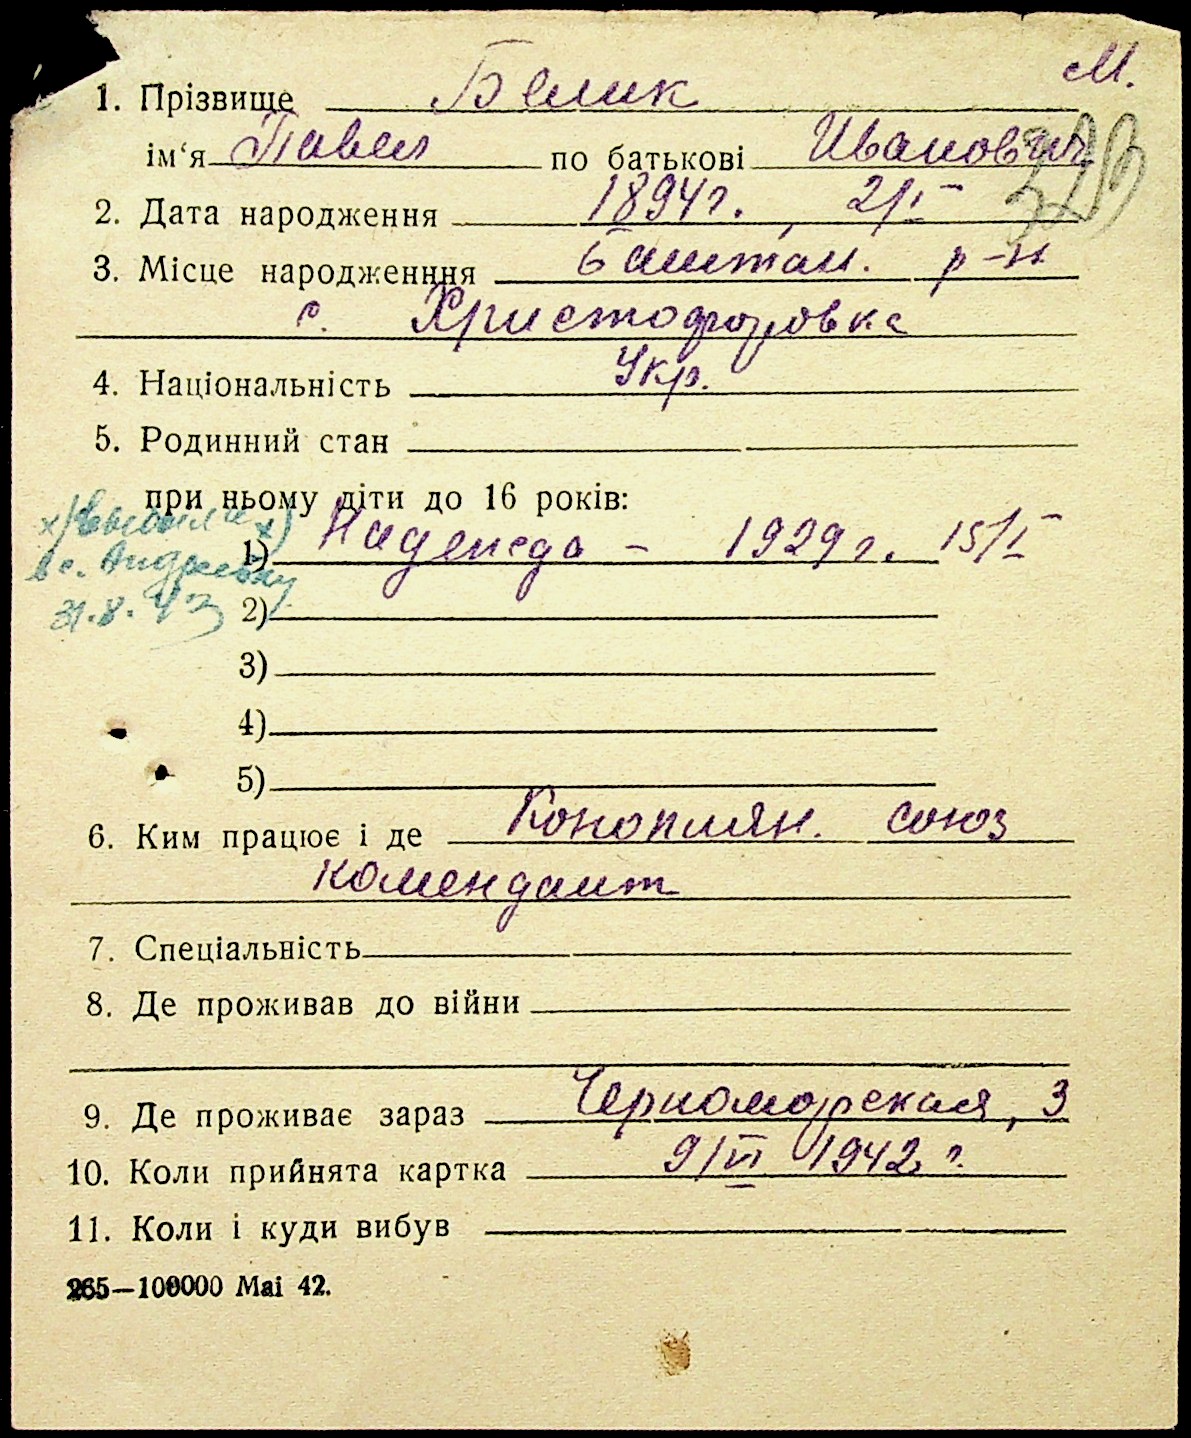 М.
1. Прізвище Белик
ім‘я Павел по батькові Иванович
2. Дата народження 1894 г., 2/I
3. Місце народженння Баштан. р-н
с. Христофоровка
4. Національність Укр.
5. Родинний стан
при ньому діти до 16 років:
х) выбыла
в с. Андреевку
31.8.43
1) х) Надежда - 1929 г. 15/I
2)
3)
4)
5)
6. Ким працює і де Коноплян. союз
комендант
7. Спеціальність
8. Де проживав до війни
9. Де проживає зараз Черноморская, 3
10. Коли прийнята картка 9/VI 1942 г.
11. Коли і куди вибув
265—100000 Маі 42.